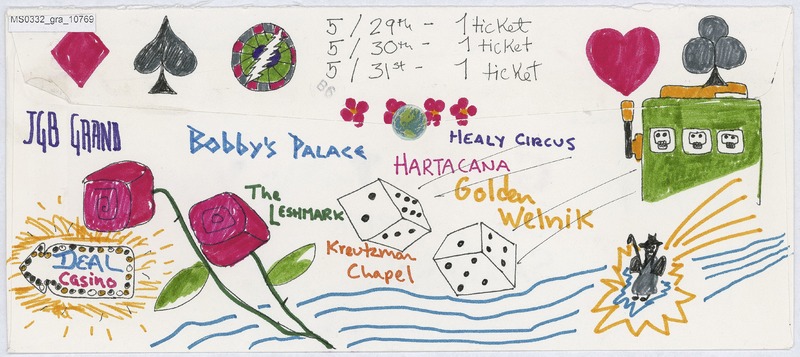 MS0332_gra_10769
5/29th - 1 ticket
5/30th - 1 ticket
5/31st - 1 ticket
JGB GRAND
Bobby's PALACE
HEALY CIRCUS
HARTACANA
The
LESHMARK
Golden
Welnik
Kreutzman
Chapel
DEAL
Casino